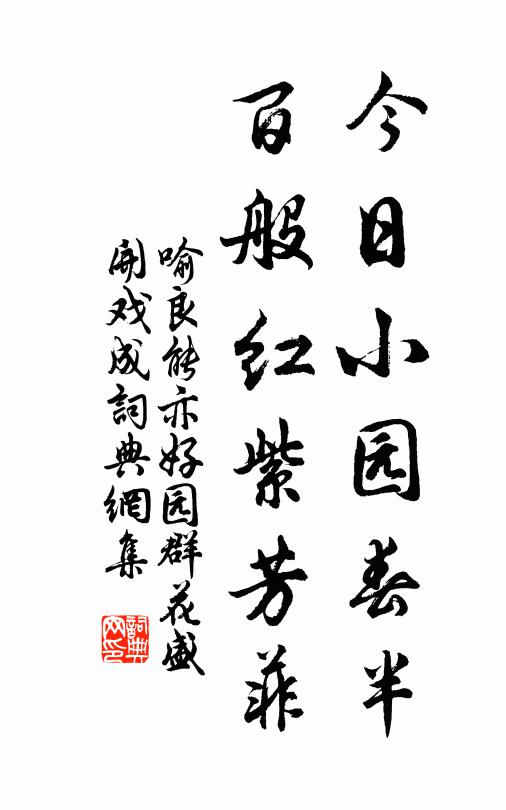 今日小园春半
百般红紫芳菲
喻良能亦好园群花盛
開戏成詞典網集
詞典
网印